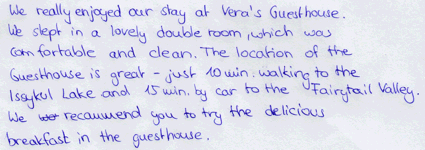 We really enjoyed our stay at Vera's Guesthouse.
We slept in a lovely double room, which was
comfortable and clean. The location of the
Guesthouse is great - just 10 min. walking to the
Issykul Lake and 15 min. by car to the Fairytail Valley.
We recommend you to try the delicious
breakfast in the guesthouse.